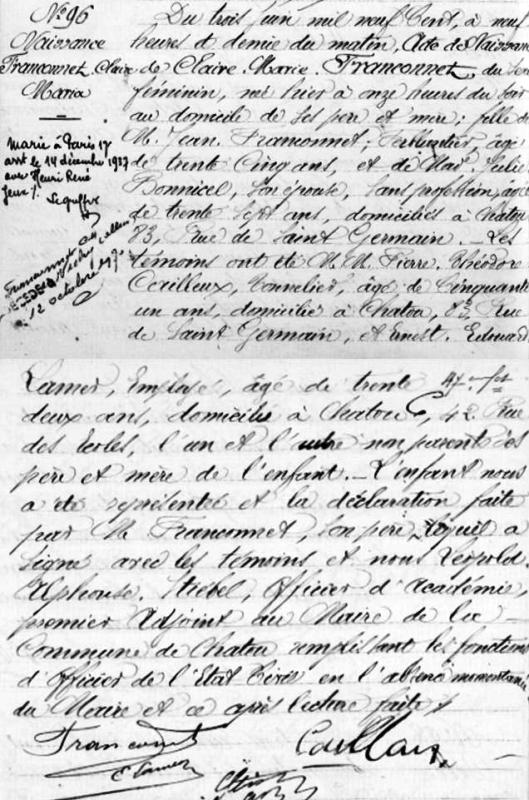 N° 96
Naissance
Franconnet Claire
Maria
marié à Paris 17
arrt le 14 décembre 1929
avec Henri René
12 octobre
Du trois juin mil neuf Cent, à neuf
heures et demie du matin, Acte de Naissance
de Claire Maria Franconnet, du sexe
féminin, née hier à onze heures du soir
au domicile de ses père et mère; fille de
M. Jean Franconnet, Ferblantier, âgé
de trente cinq ans, et de Made Julie
Bonnicel, son épouse, sans profession, âgée
de trente sept ans, domiciliés à Chatou
83, Rue de Saint Germain. _ Les
témoins ont été M.M. Pierre Théodore
Cerilleux, Tonnelier, âgé de Cinquante
un ans, domicilié à Chatou, 83, Rue
de Saint Germain, et Ernest Edouard
Lamer, Employé, âgé de trente
deux ans, domicilié à Chatou, 42 Rue
des Ecoles, l'un et l'autre non parents des
père et mère de l'enfant. _ L'enfant nous
a été représentée et la déclaration faite
par M. Franconnet, son père, lequel a
signé avec les témoins et nous Léopold
Alphonse Stiebel, Officier d'Académie,
premier Adjoint au Maire de la
Commune de Chatou remplissant les fonctions
d'Officier de l'Etat Civil en l'absence momentanée
du Maire et ce après lecture faite
Franconnet
E. Lamer